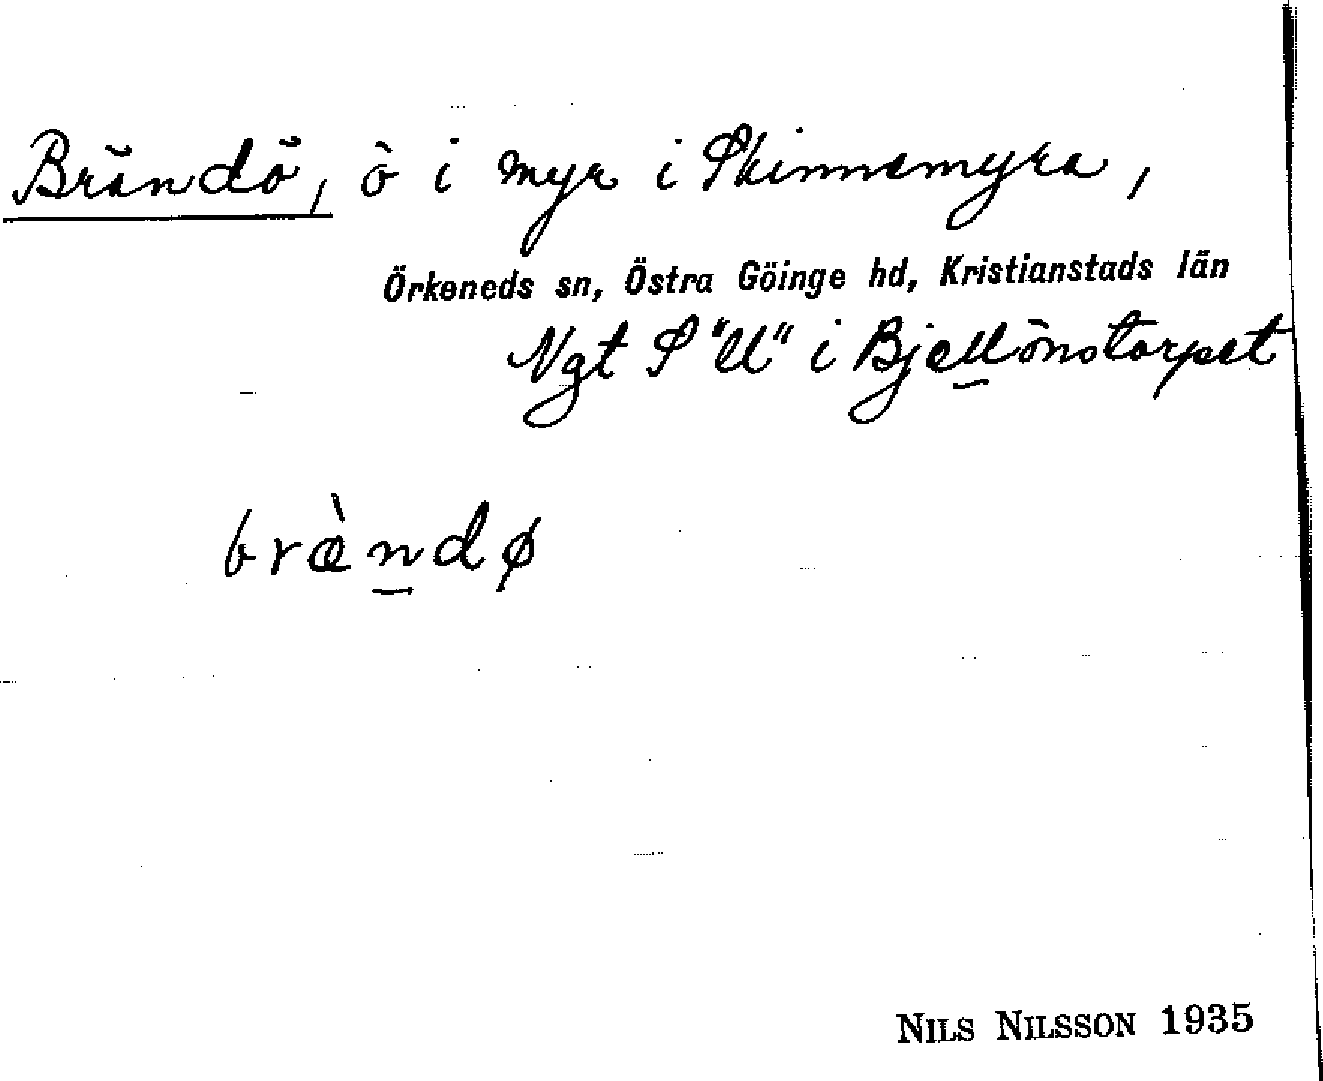 Brändö, ö i myr i Skinnemyra,
Örkeneds sn, Östra Göinge hd, Kristianstads län
Ngt S "ll" i Bjellönstorpet
brændø
NILS NILSSON 1935